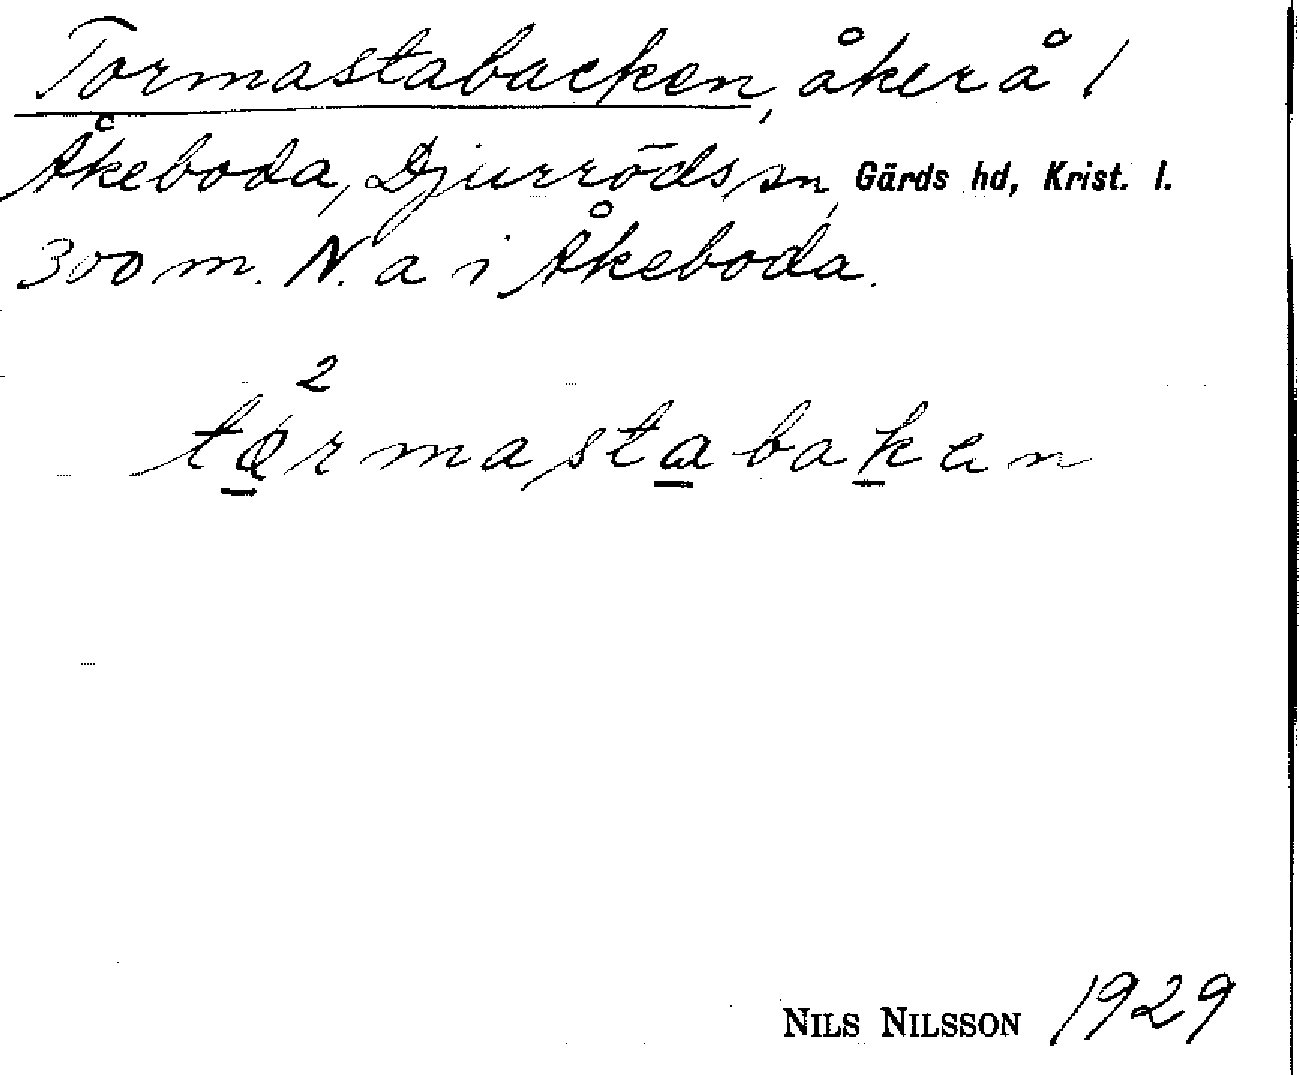 Tormastabacken, åker å 1
Åkeboda, Djurröds sn, Gärds hd, Krist. l.
300 m. N. a i Åkeboda.
2
tørmastabaken
NILS NILSSON 1929